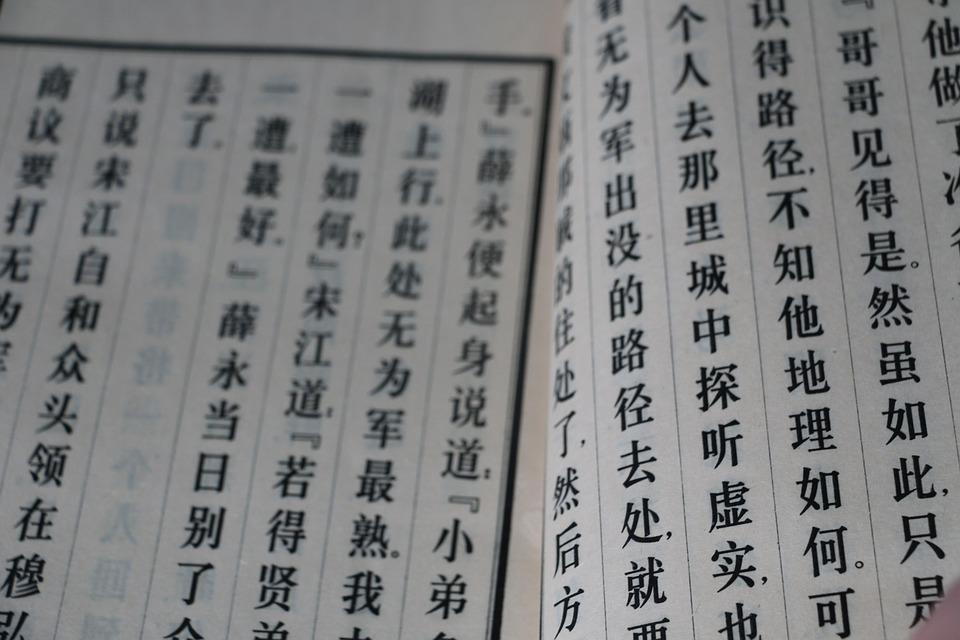 他做了
『哥哥见得是。然虽如此,只是
识得路径,不知他地理如何。可
个人去那里城中探听虚实,也
看无为军出没的路径去处,就要
的住处了,然后方
手。』薛永便起身说道:『小弟
湖上行。此处无为军最熟。我
一遭如何?』宋江道:『若得贤弟
一遭,最好。』薛永当日别了
去了。
只说宋江自和众头领在穆弘
商议要打无为军